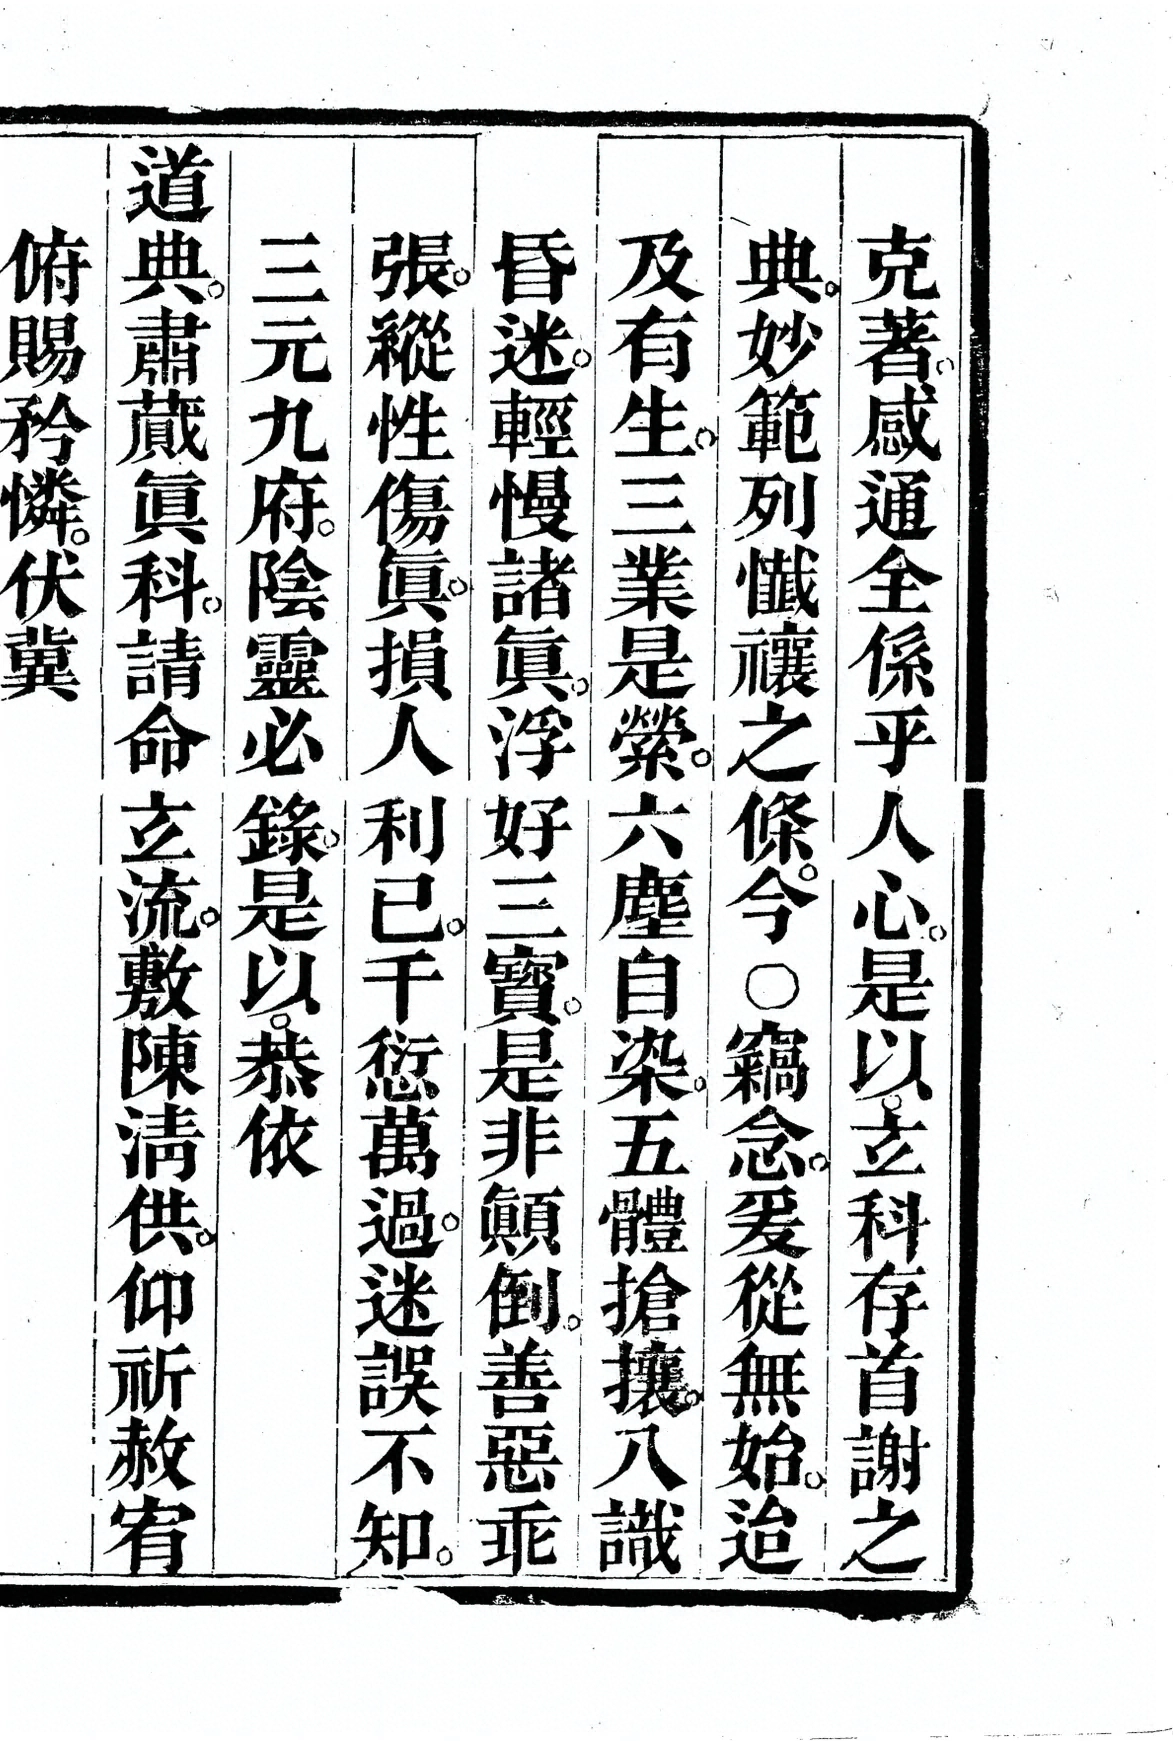 克著。感通全係乎人心。是以。立科存首謝之
典。妙範列懺禳之條。今○竊念。爰從無始。迨
及有生。三業是縈。六塵自染。五體搶攘。八識
昏迷。輕慢諸眞。浮好三寶。是非顛倒。善惡乖
張。縱性傷眞。損人利已。千愆萬過。迷誤不知。
三元九府。陰靈必錄。是以。恭依
道典。肅蕆眞科。請命立流。敷陳淸供。仰祈赦宥
俯賜矜憐。伏冀